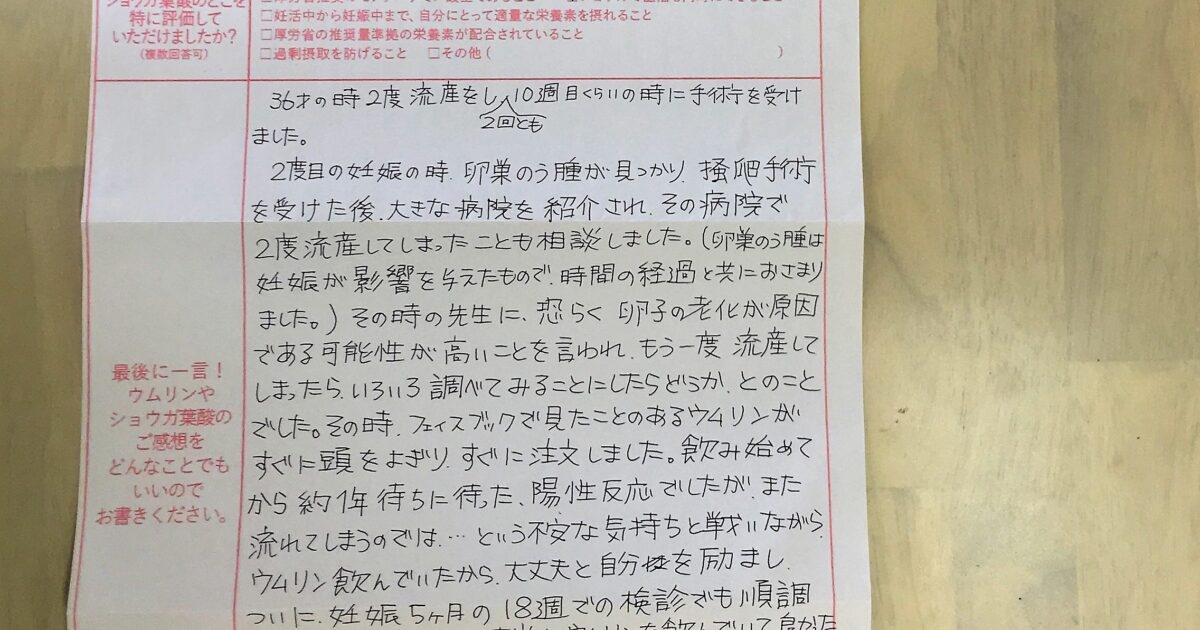 ショウガ葉酸のどこを
特に評価して
いただけましたか?
(複数回答可)
□妊活中から妊娠中まで、自分にとって適量な栄養素を摂れること
□厚労省の推奨量準拠の栄養素が配合されていること
□過剰摂取を防げること □その他( )
36才の時2度流産をし、10週目くらいの時に手術を受け
2回とも
ました。
2度目の妊娠の時、卵巣のう腫が見つかり、掻爬手術
を受けた後、大きな病院を紹介され、その病院で
2度流産してしまったことも相談しました。(卵巣のう腫は
妊娠が影響を与えたもので、時間の経過と共におさまり
ました。)その時の先生に、恐らく卵子の老化が原因
である可能性が高いことを言われ、もう一度流産して
しまったら、いろいろ調べてみることにしたらどうか、とのこと
でした。その時、フェイスブックで見たことのあるウムリンが
すぐに頭をよぎり、すぐに注文しました。飲み始めて
から約1年待ちに待った、陽性反応でしたが、また
流れてしまうのでは、…という不安な気持ちと戦いながら、
ウムリン飲んでいたから、大丈夫と自分を励まし、
ついに、妊娠5ヶ月の18週での検診でも順調
ウムリンを飲んでいて良かった
最後に一言!
ウムリンや
ショウガ葉酸の
ご感想を
どんなことでも
いいので
お書きください。